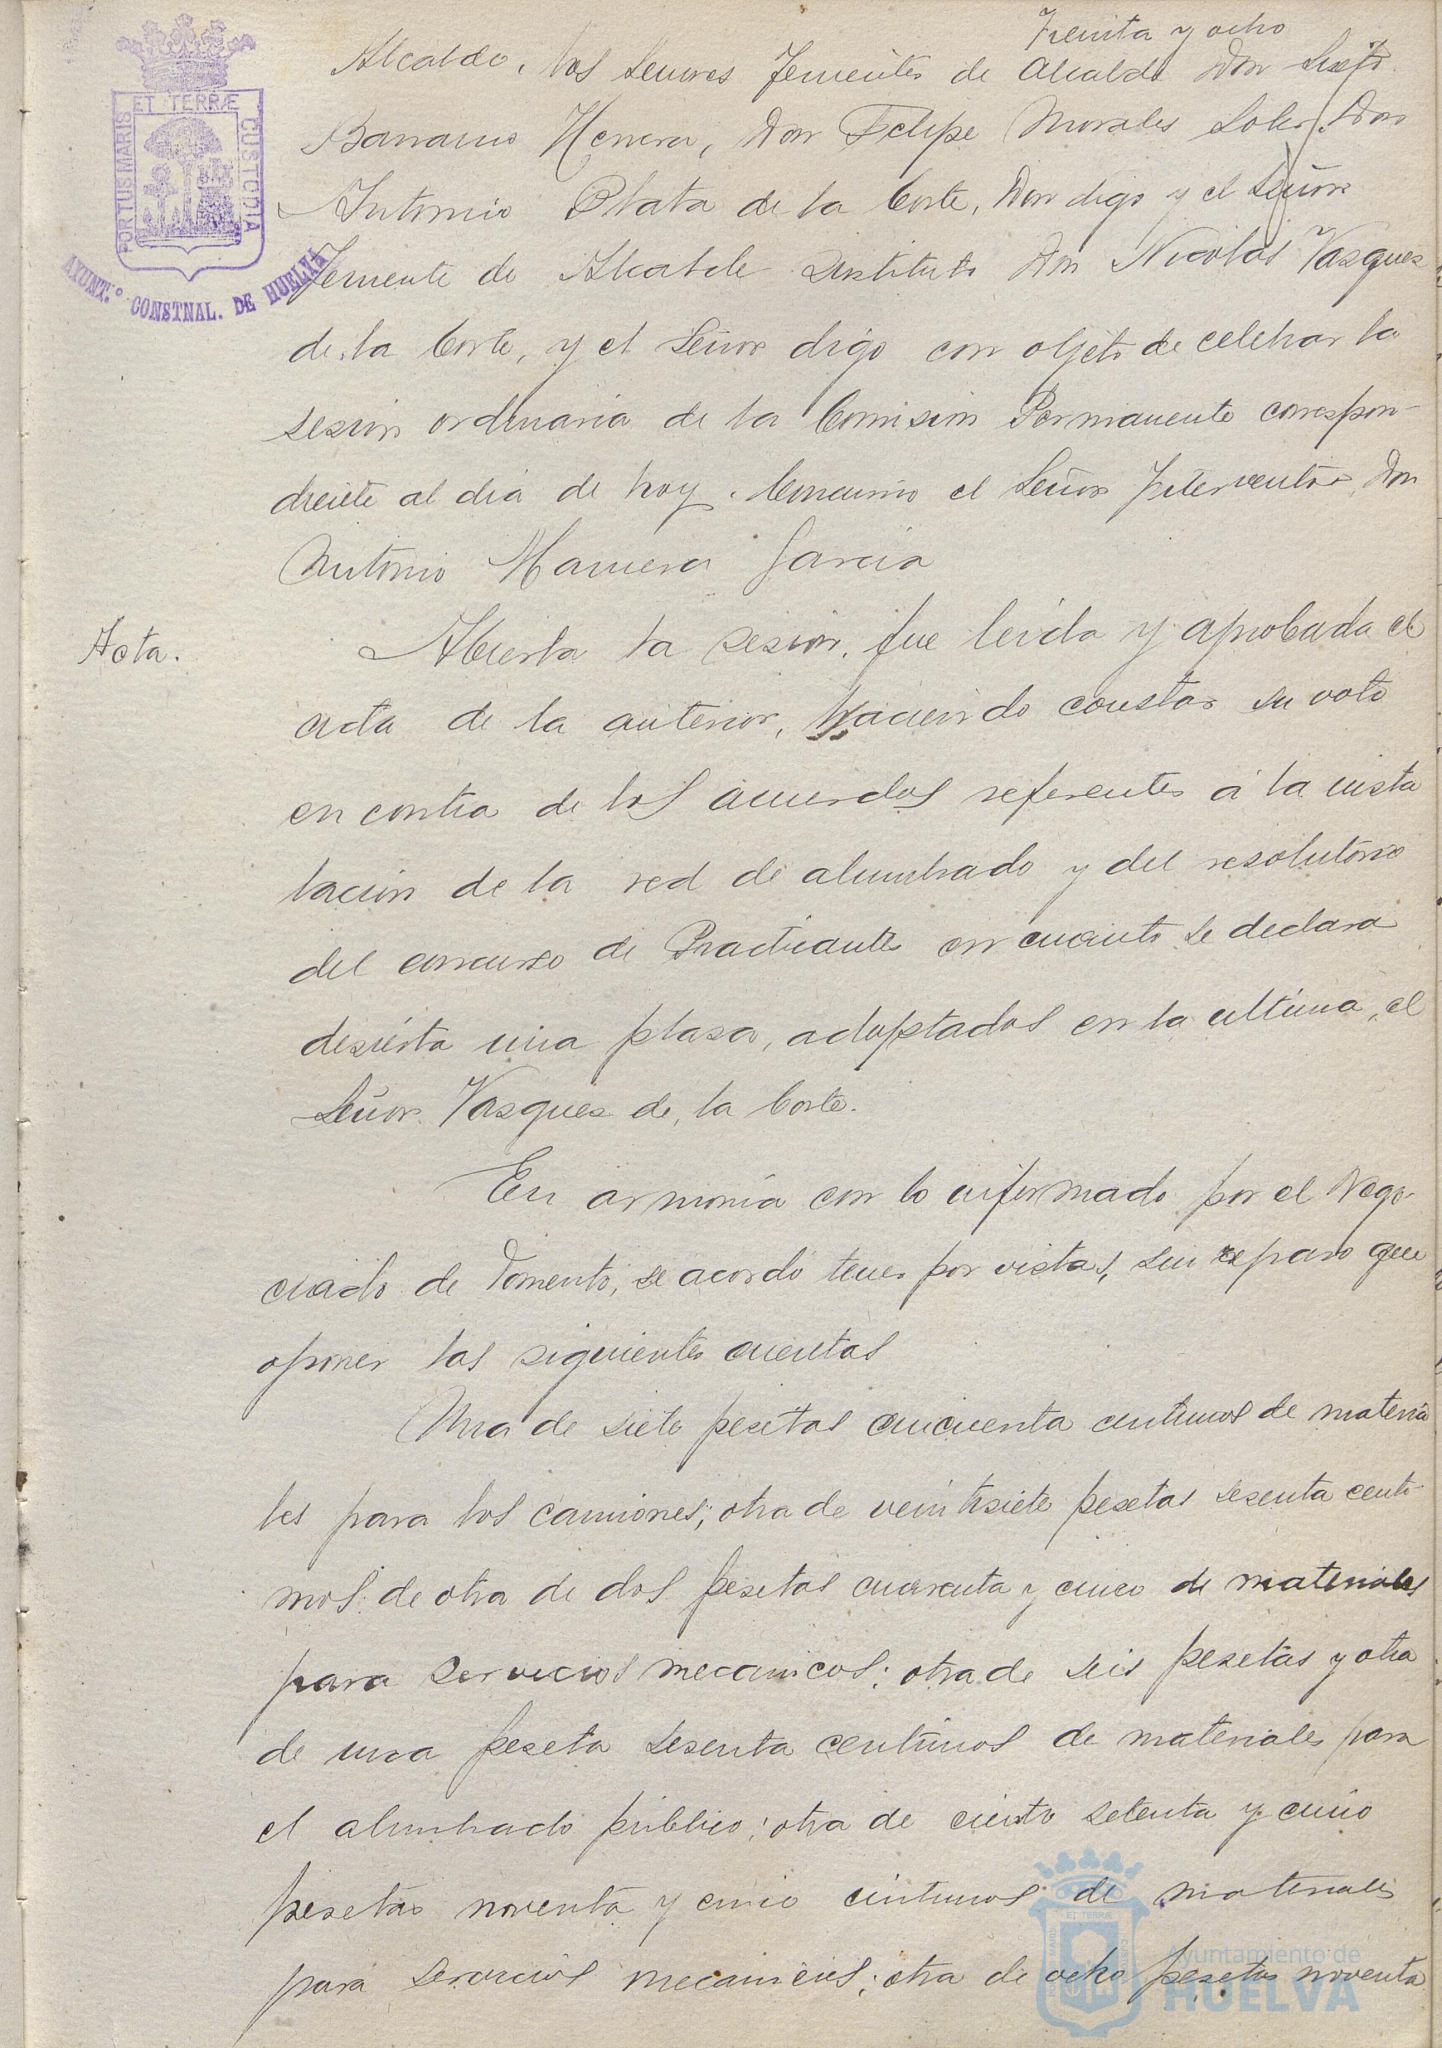 Treinta y ocho
Alcalde, los Señores Tenientes de Alcalde Don Sixto
Barranco Herrera, Don Felipe Morales Soler, Don
Antonio Plata de la Corte, Don digo y el Señor
Teniente de Alcalde sustituto Don Nicolás Vasques
de la Corte, y el Señor digo con objeto de celebrar la
sesión ordinaria de la Comisión Permanente correspon-
diente al dia de hoy. Concurrió el Señor Interventor, Don
Antonio Garcia
Acta.
Abierta la sesión, fue leida y aprobada el
acta de la anterior, haciendo constar su voto
en contra de los acuerdos referentes á la insta
lación de la red de alumbrado y del resolutorio
del concurso de Practicantes en cuanto se declara
desierta una plasa, adoptados en la última, el
Señor Vasques de la Corte.
En armonía con lo informado por el Nego-
ciado de Fomento, se acordó tener por vistas, sin reparo que
oponer las siguientes cuentas
Una de siete pesetas cincuenta centimos de materia
les para los camiones; otra de veintisiete pesetas sesenta centi-
mos: de otra de dos pesetas cuarenta y cinco de materiales
para servicios mecanicos; otra de seis pesetas y otra
de una peseta sesenta centimos de materiales para
el alumbrado público; otra de ciento setenta y cinco
pesetas noventa y cinco centimos de materiales
para servicios mecanicos; otra de ocho pesetas noventa
PORTUS MARIS ET TERRÆ CUSTODIA
AYUNT.º CONSTNAL. DE HUELVA
Ayuntamiento de
HUELVA